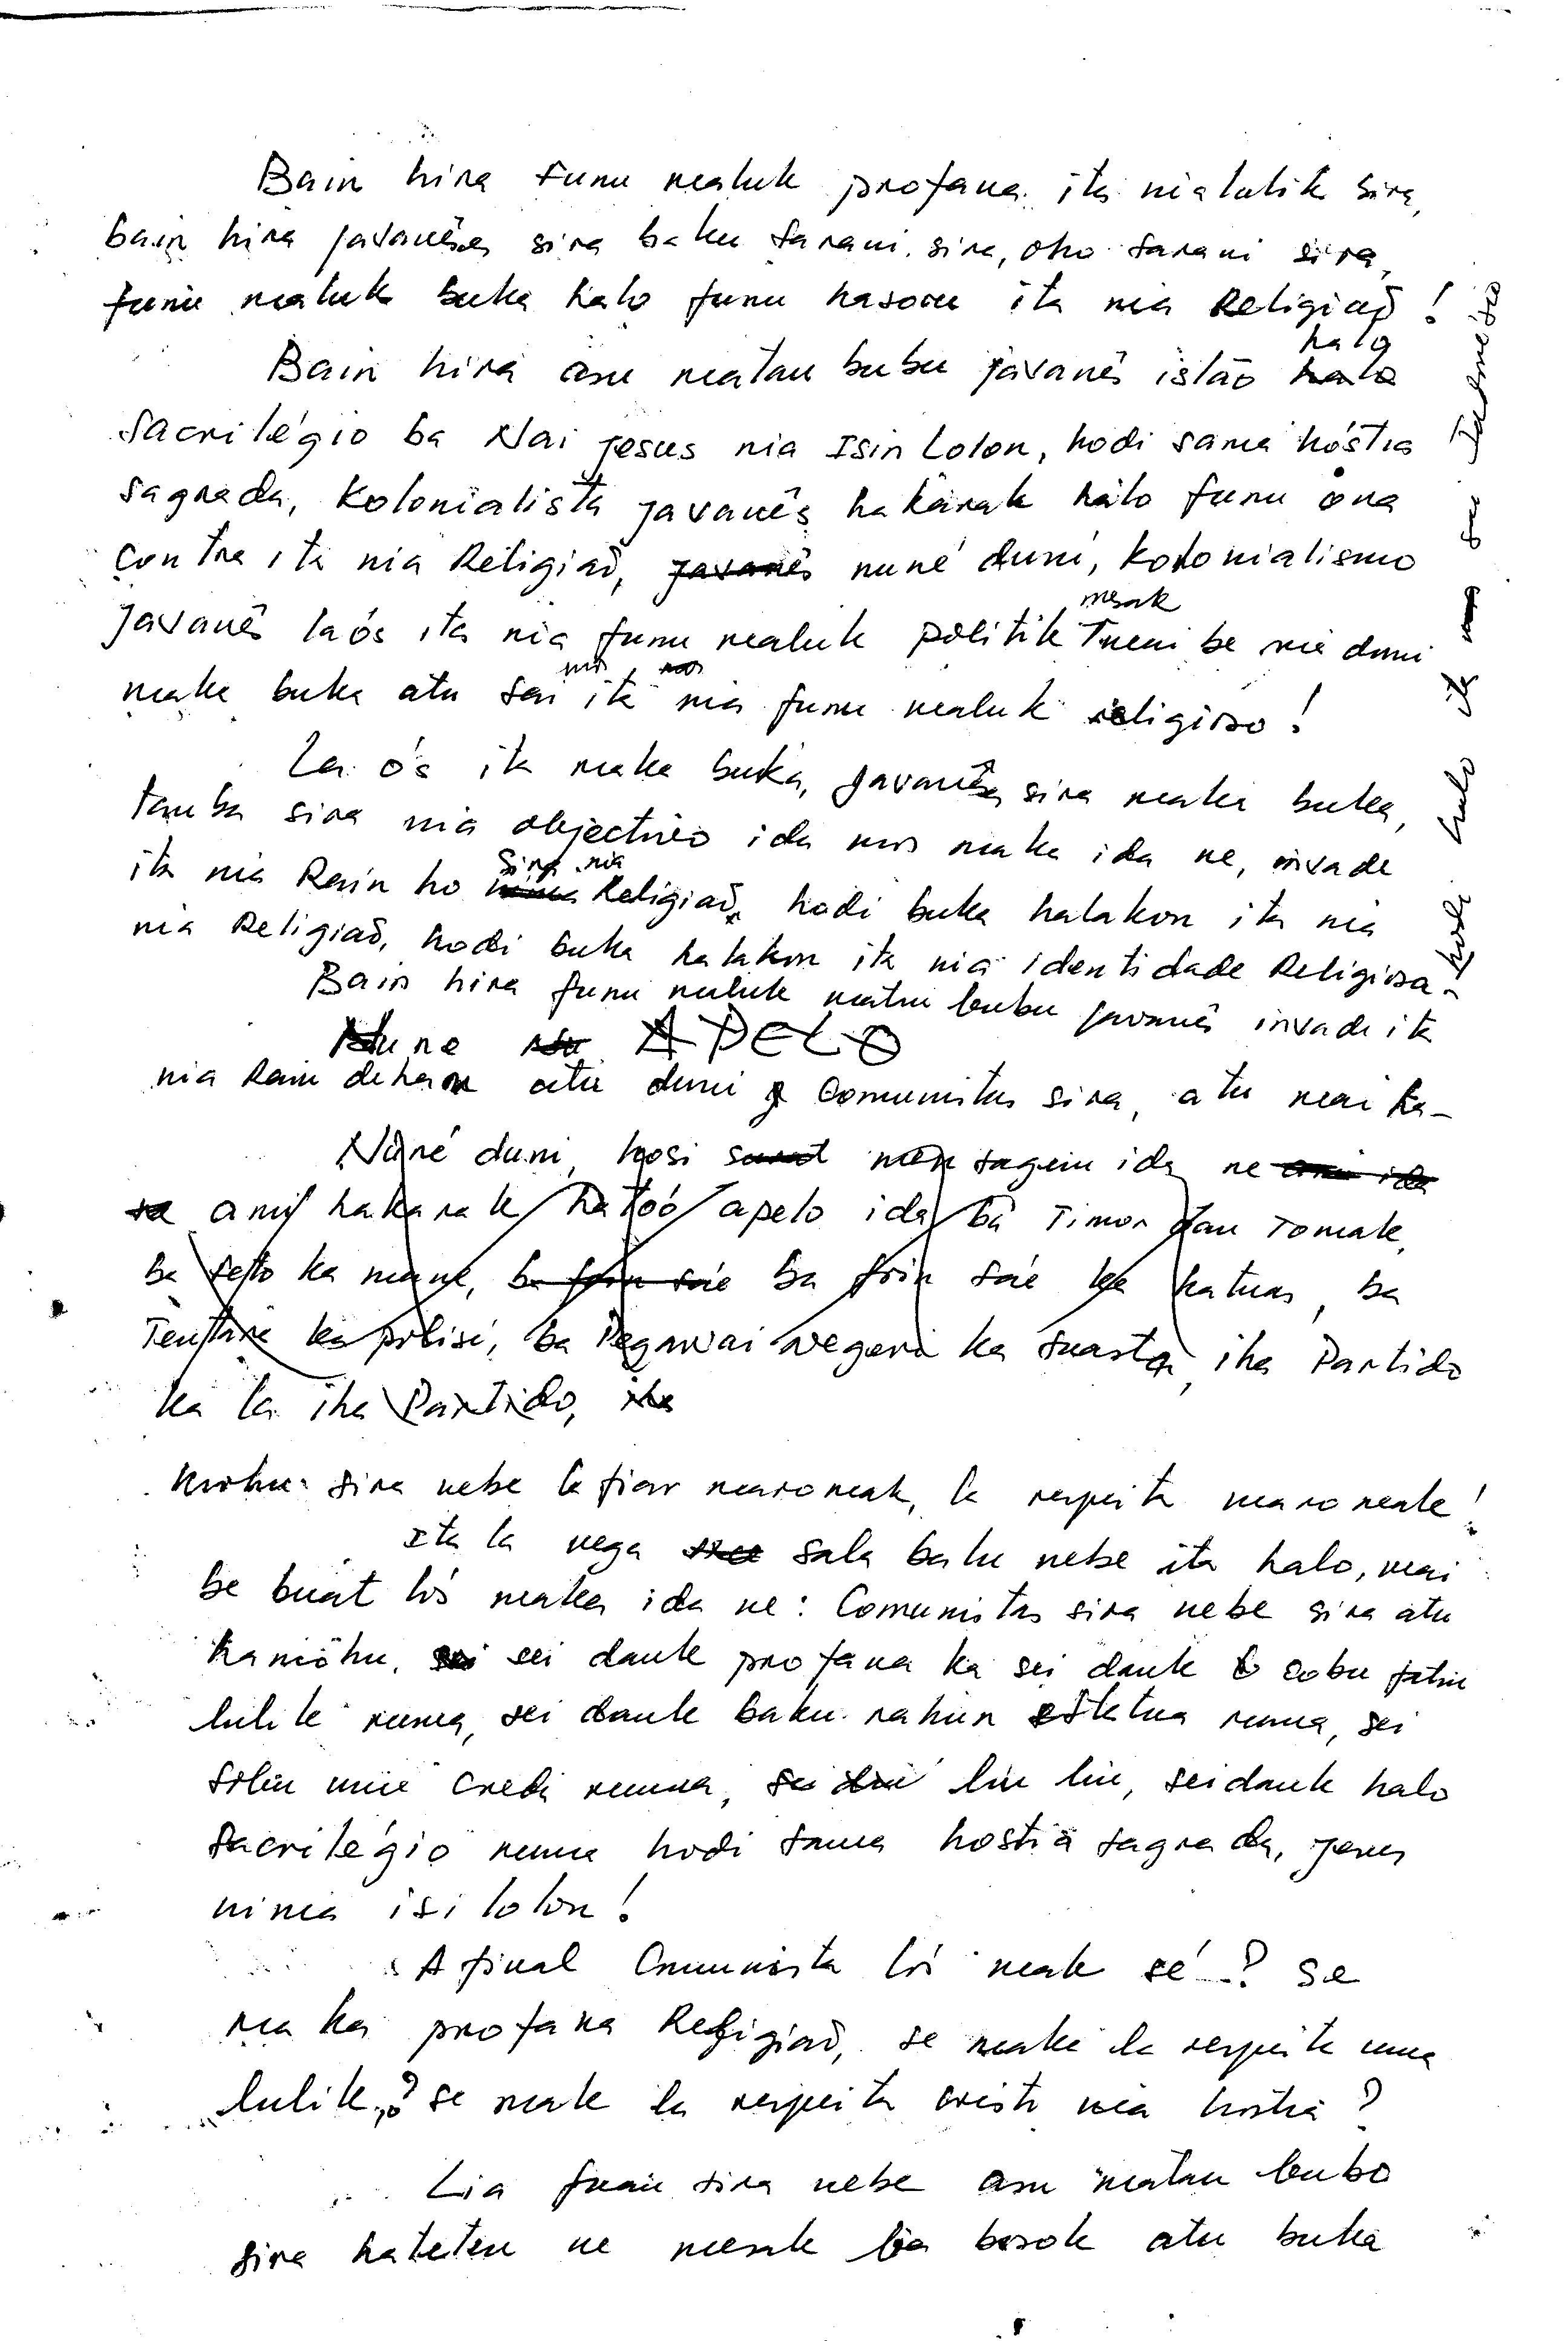 Bain hira funu maluk profana ita nia lulik sira,
bain hira javanêses sira baku sarani sira, oho sarani sira,
funu maluk buka halo funu hasoru ita nia Religião!
Bain hira asu matan bubu javanês islão halo
sacrilégio ba Nai Jesus nia Isin Lolon, hodi sama hóstia
sagrada, kolonialista javanês hakarak halo funu ona
contra ita nia Religião, javanês nuné duni, kolonialismo
javanês laós ita nia funu maluk politik mesak mai be nia duni
maka buka atu sai mos ita nia funu maluk religioso!
La ós ita maka buka, javanês sira maka buka,
tauba sira nia objectivo ida mos maka ida ne, invade
ita nia Rain ho sira nia Religião, hodi buka halakon ita nia
nia Religião, hodi buka halakon ita nia identidade Religiosa
hodi halo ita sai
Bain hira funu maluk matan bubu javanês invade ita
Nune APELO
nia Rain dehan atu duni Comunistas sira, atu mai ha-
Nuné duni, hosi mensagem ida ne
ami hakarak hatóó apelo ida bá Timor oan Tomak,
ba feto ka mane, ba foin sáe ba foin sáe ka katuas, ba
Tentara ka polisi, ba Pegawai Negeri ka suasta, iha Partido
ka la iha Partido, iha
mohu sira nebe la fiar maromak, la respeita maromak!
Ita la nega sala balu nebe ita halo, mai
be buat lós maka ida ne: Comunistas sira nebe sira atu
hamohu, sei dauk profana ka sei dauk sobu fatin
lulik ruma, sei dauk baku rahun estatua ruma, sei
solin mie creda ruma, liu liu, seidauk halo
sacrilégio ruma hodi sama hostia sagrada, Jesus
ninia isi lolon!
Afinal Comunista lós mak sé? Se
maka profana Religião, se maka la respeita uma
lulik? se mak la respeita cristo nia hóstia?
Lia fuan sira nebe asu matan bubo
sira hateten ne mesak ba bosok atu buka